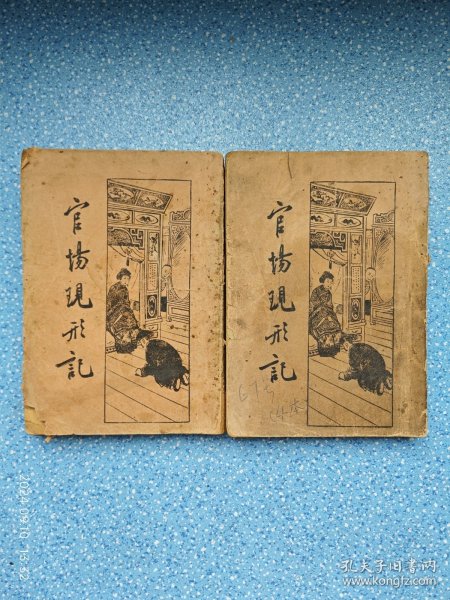 官場現形記
官場現形記
2024.09.10 15:52
孔夫子旧书网
www.kongfz.com